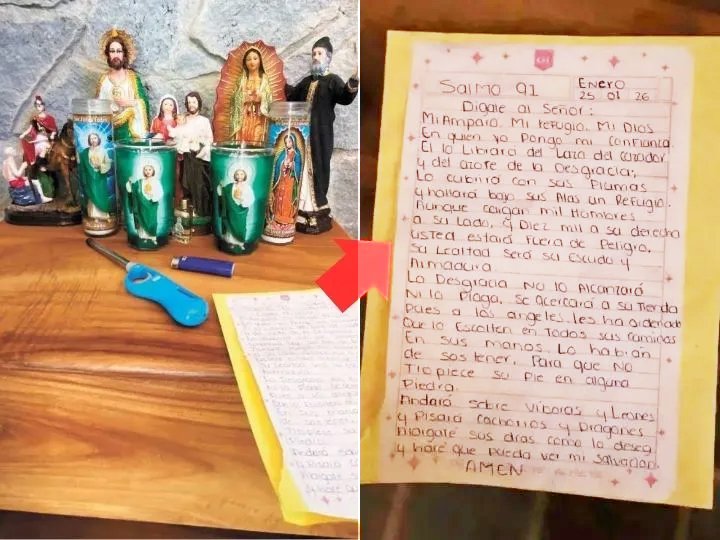 Salmo 91
Enero
25 01 26
Digale al Señor:
Mi Amparo. Mi refugio. Mi Dios
En quien yo Pongo mi confianza.
El lo Librara del Lazo del cazador
y del azote de la Desgracia;
Lo cubrirá con sus Plumas
y hallará bajo sus Alas un Refugio.
Aunque caigan mil Hombres
a su Lado, y Diez mil a su derecha
usted estará Fuera de Peligro.
Su Lealtad será su Escudo y
Armadura.
La Desgracia NO lo Alcanzará
Ni la Plaga. se Acercará a su Tienda
Pues a los angeles. les ha ordenado
Que lo Escolten en Todos sus caminos
En sus manos. Lo habran
de sostener. Para que NO
Tropiece su Pie en alguna
Piedra.
Andará sobre Víboras y Leones
y Pisará cachorros y Dragones
Alargaré sus días como lo desea
y haré que pueda ver mi Salvación.
AMEN